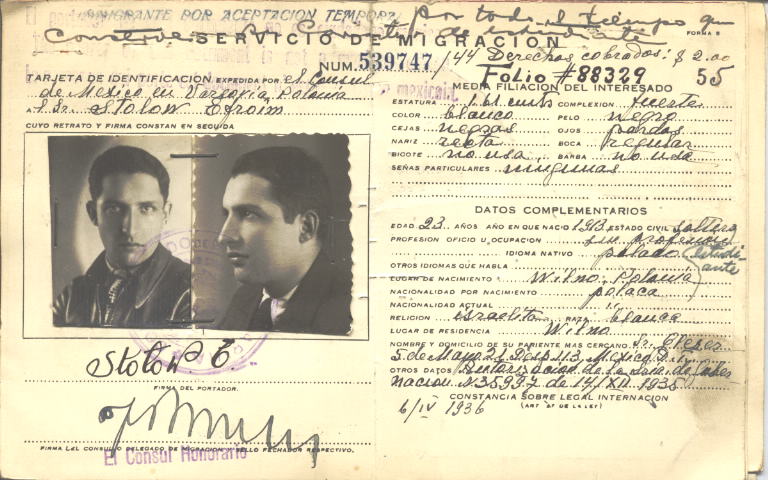 INMIGRANTE POR ACEPTACION TEMPORAL
por todo el tiempo que
conserve su estudiante
FORMA 5
SERVICIO DE MIGRACION
NUM. 539747 /44 Derechos cobrados: $ 2.00
Folio #88329 55
TARJETA DE IDENTIFICACION EXPEDIDA POR el Consul
de Mexico en Varsovia, Polonia
A Sr. Stolow Efroim
CUYO RETRATO Y FIRMA CONSTAN EN SEGUIDA
Stolow E.
FIRMA DEL PORTADOR.
FIRMA DEL CONSUL O DELEGADO DE MIGRACION Y SELLO FECHADOR RESPECTIVO.
El Consul Honorario
MEDIA FILIACION DEL INTERESADO
ESTATURA 1.61 cmts COMPLEXION fuerte
COLOR blanco PELO negro
CEJAS negras OJOS pardos
NARIZ recta BOCA regular
BIGOTE no usa BARBA no usa
SEÑAS PARTICULARES ningunas
DATOS COMPLEMENTARIOS
EDAD 23 AÑOS AÑO EN QUE NACIO 1913 ESTADO CIVIL soltero
PROFESION OFICIO U OCUPACION sin profesion
IDIOMA NATIVO polaco (estudiante
OTROS IDIOMAS QUE HABLA
LUGAR DE NACIMIENTO Wilno, Polonia
NACIONALIDAD POR NACIMIENTO polaca
NACIONALIDAD ACTUAL "
RELIGION israelita RAZA blanca
LUGAR DE RESIDENCIA Wilno
NOMBRE Y DOMICILIO DE SU PARIENTE MAS CERCANO Sr. Elezer
5 de Mayo 21 Desp. 113, Mexico D.F.
OTROS DATOS Autorizacion de la Sria. de Gobernacion N. 35997 de 14/XII 1935
CONSTANCIA SOBRE LEGAL INTERNACION
6/IV 1936 (ART 57 DE LA LEY)